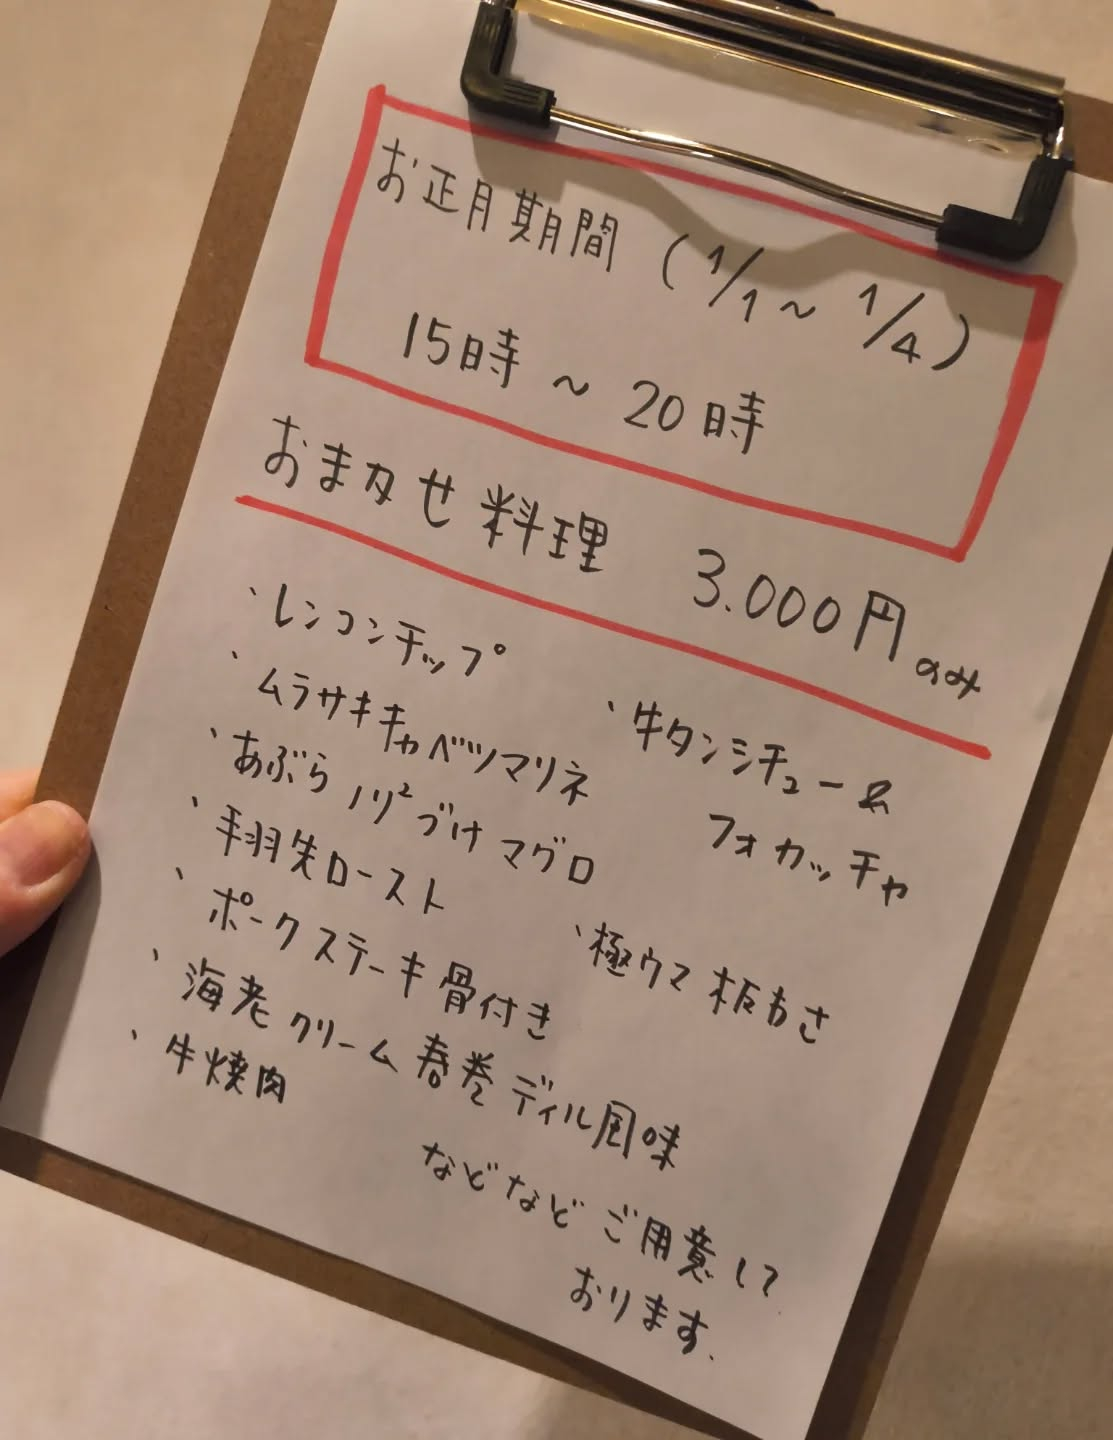 お正月期間 (1/1～1/4)
15時～20時
おまかせ料理 3.000円のみ
、レンコンチップ
、ムラサキキャベツマリネ
、あぶらノリ²づけマグロ
、手羽先ロースト
、ポークステーキ骨付き
、海老クリーム春巻ディル風味
、牛焼肉
、牛タンシチュー&
フォカッチャ
、極ウマ板わさ
などなどご用意して
おります.